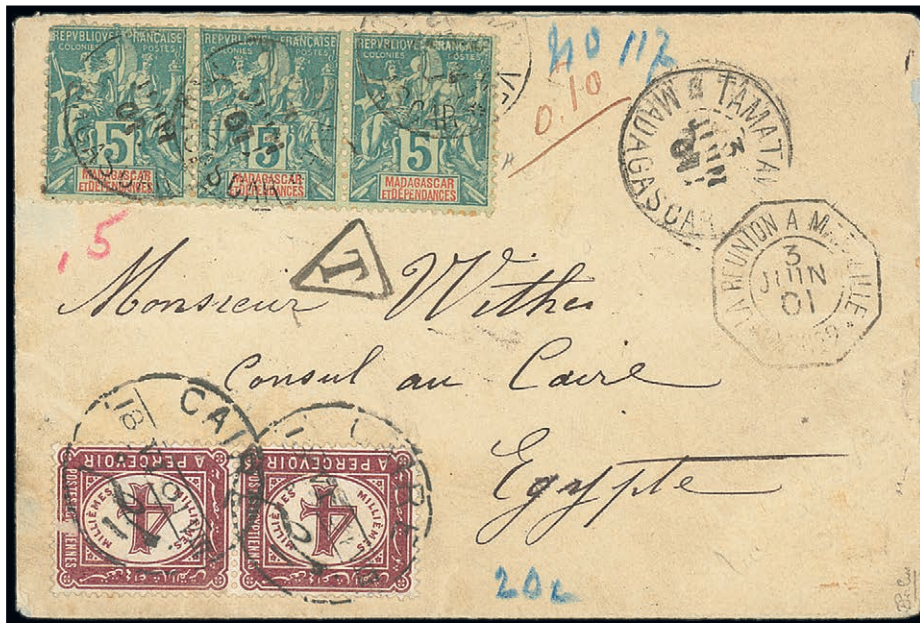 REPVBLIQVE FRANÇAISE
COLONIES POSTES
5
MADAGASCAR
ET DÉPENDANCES
REPVBLIQVE FRANÇAISE
COLONIES POSTES
5
MADAGASCAR
ET DÉPENDANCES
REPVBLIQVE FRANÇAISE
COLONIES POSTES
5
MADAGASCAR
ET DÉPENDANCES
0.10
TAMATAVE
3
JUIN
01
MADAGASCAR
,5
T
LA REUNION A MARSEILLE
3
JUIN
01
Monsieur Withes
Consul au Caire
Egypte
CAIRE
A PERCEVOIR
MILLIÈMES MILLIÈMES
4
POSTES ÉGYPTIENNES
A PERCEVOIR
MILLIÈMES MILLIÈMES
4
POSTES ÉGYPTIENNES
20c